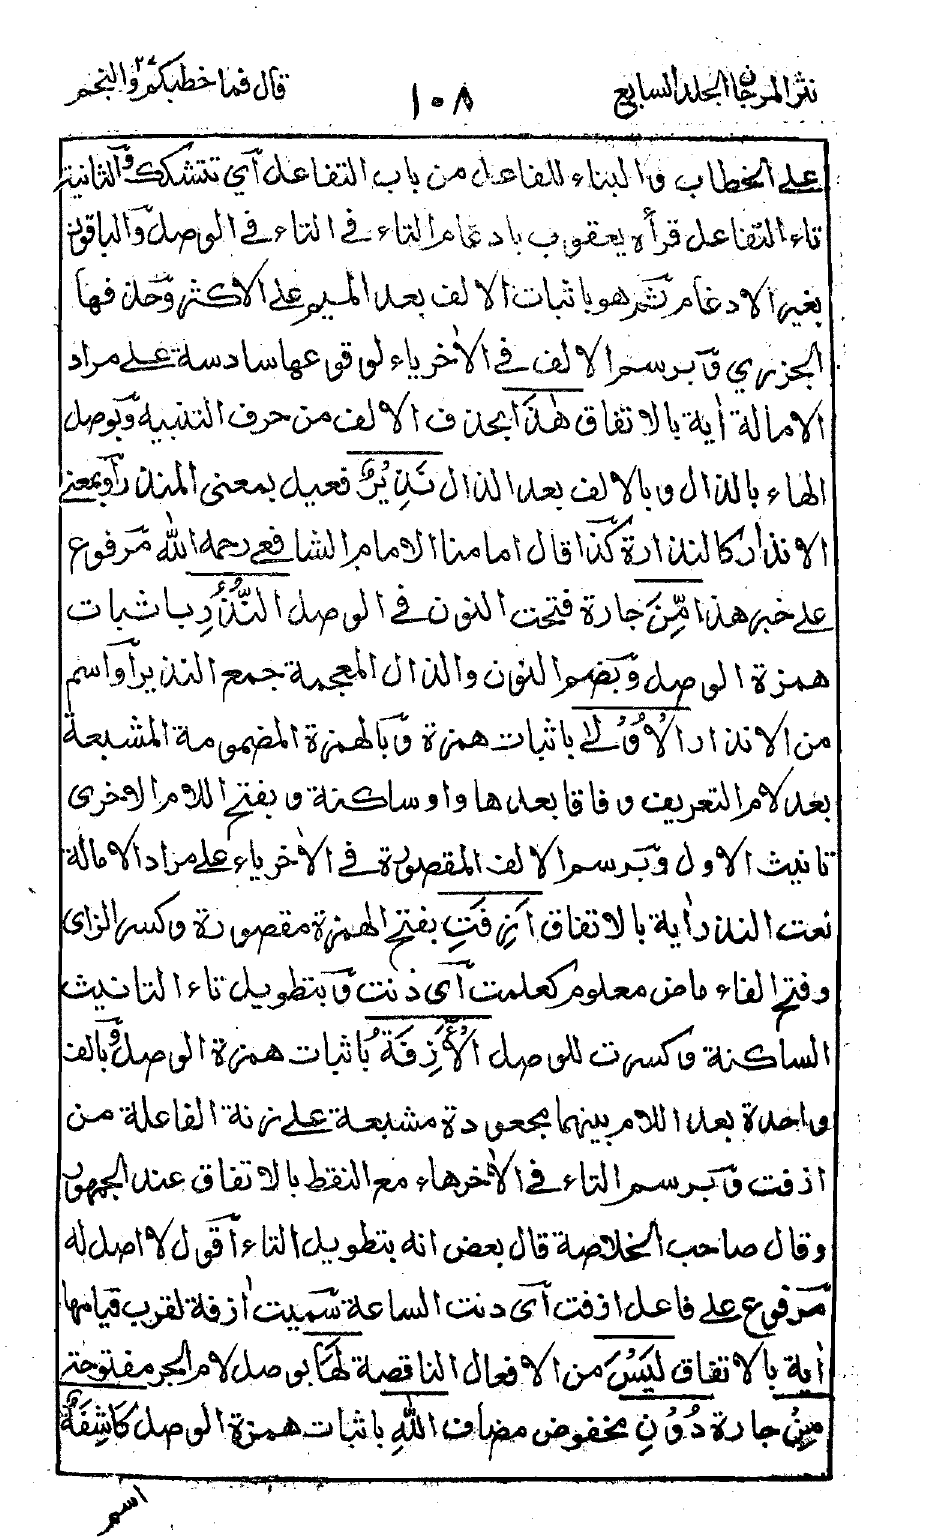 نثر المرجان الجلد السابع
١٠٨
قال فما خطبكم ٢٧ والنجم
على الخطاب والبناء للفاعل من باب التفاعل آي تتشكك والثانية
تاء التفاعل قرأه يعقوب بادغام التاء في التاء في الوصل والباقون
بغير الادغام ثم هو باثبات الالف بعد الميم على الاكثر وحذفها
الجزري وبرسم الالف في الأخر ياء لوقوعها سادسة على مراد
الامالة أية بالاتفاق هٰذَا بحذف الالف من حرف التنبيه وبوصل
الهاء بالذال وبالالف بعد الذال نَذِيْرٌ فعيل بمعنى المنذر او بمعنى
الانذار كالنذارة كذا قال امامنا الامام الشافعي رحمه الله مرفوع
على خبر هذا مِّنَ جارة فتحت النون في الوصل النُّذُرِ باثبات
همزة الوصل وبضم النون والذال المعجمة جمع النذير او اسم
من الانذار الْاُوْلٰى باثبات همزة وبالهمزة المضمومة المشبعة
بعد لام التعريف وفاقا بعدها واو ساكنة وبفتح اللام الاخرى
تانيث الاول وبرسم الالف المقصورة في الأخر ياء على مراد الامالة
نعت النذر أية بالاتفاق اَزِفَتِ بفتح الهمزة مقصورة وكسر الزاى
وفتح الفاء ماض معلوم كعلمت آى دنت وبتطويل تاء التانيث
الساكنة وكسرت للوصل الْاٰزِفَةُ باثبات همزة الوصل وبالف
واحدة بعد اللام بينهما مجعودة مشبعة على زنة الفاعلة من
ازفت وبرسم التاء في الأخر هاء مع النقط بالاتفاق عند الجمهور
وقال صاحب الخلاصة قال بعض انه بتطويل التاء اقول لا اصل له
مرفوع على فاعل ازفت آى دنت الساعة سميت أزفة لقرب قيامها
أية بالاتفاق لَيْسَ من الافعال الناقصة لَهَا بوصل لام الجر مفتوحة
مِنْ جارة دُوْنِ مخفوض مضاف اللّٰهِ باثبات همزة الوصل كَاشِفَةٌ
اسم